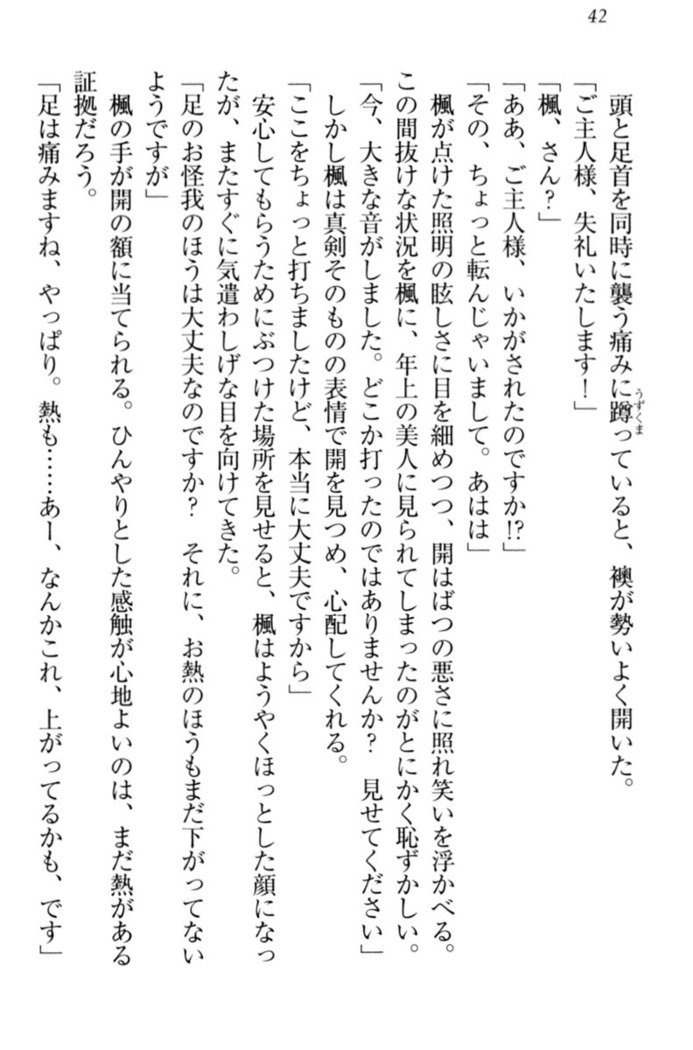 42
頭と足首を同時に襲う痛みに蹲っていると、襖が勢いよく開いた。
うずくま
「ご主人様、失礼いたします！」
「楓、さん？」
「ああ、ご主人様、いかがされたのですか!?」
「その、ちょっと転んじゃいまして。あはは」
楓が点けた照明の眩しさに目を細めつつ、開はばつの悪さに照れ笑いを浮かべる。
この間抜けな状況を楓に、年上の美人に見られてしまったのがとにかく恥ずかしい。
「今、大きな音がしました。どこか打ったのではありませんか？　見せてください」
しかし楓は真剣そのものの表情で開を見つめ、心配してくれる。
「ここをちょっと打ちましたけど、本当に大丈夫ですから」
安心してもらうためにぶつけた場所を見せると、楓はようやくほっとした顔になっ
たが、またすぐに気遣わしげな目を向けてきた。
「足のお怪我のほうは大丈夫なのですか？　それに、お熱のほうもまだ下がってない
ようですが」
楓の手が開の額に当てられる。ひんやりとした感触が心地よいのは、まだ熱がある
証拠だろう。
「足は痛みますね、やっぱり。熱も……あー、なんかこれ、上がってるかも、です」